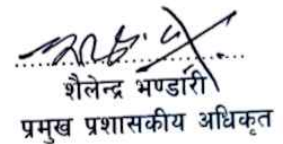 शैलेन्द्र भण्डारी
प्रमुख प्रशासकीय अधिकृत